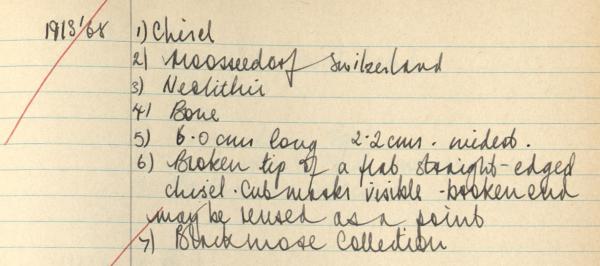 1913'68 1) Chisel
2) Moosseedorf Switzerland
3) Neolithic
4) Bone
5) 6.0 cms long 2.2 cms. widest.
6) Broken tip of a flat straight-edged
chisel. Cut marks visible - broken end
may be reused as a point
7) Blackmore Collection